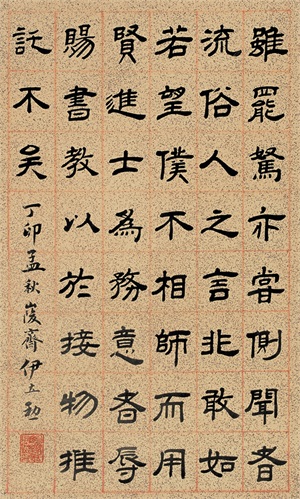 雖罷駑亦嘗側聞者
流俗人之言非敢如
若望僕不相師而用
賢進士為務意者辱
賜書教以於接物推
託不吳
丁卯孟秋峻齋伊立勳